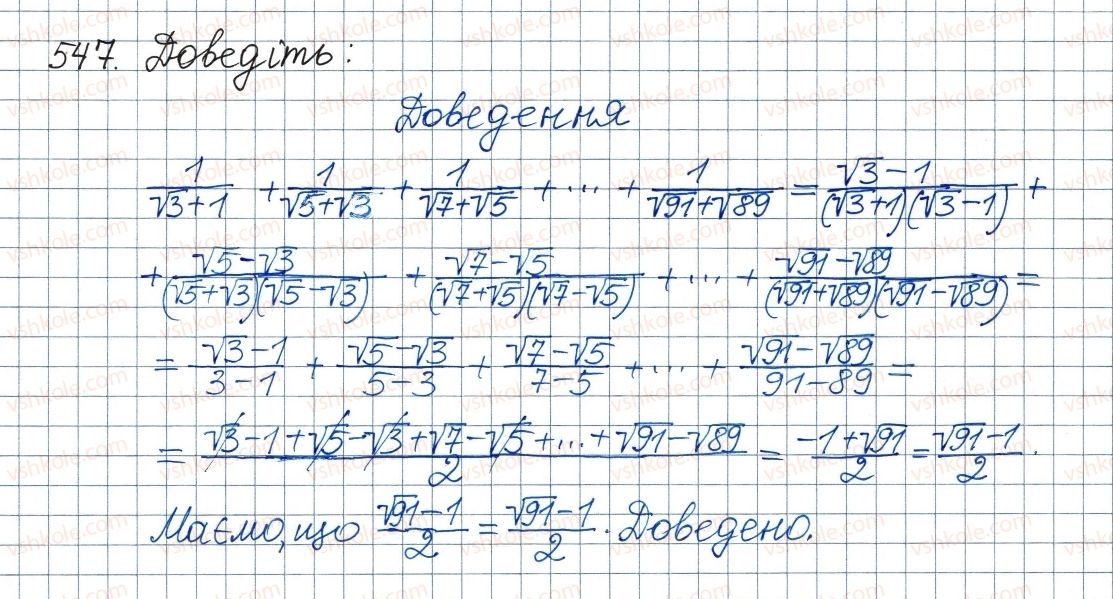 547. Доведіть:
Доведення
1/(√3+1) + 1/(√5+√3) + 1/(√7+√5) + ... + 1/(√91+√89) = (√3-1)/((√3+1)(√3-1)) +
+ (√5-√3)/((√5+√3)(√5-√3)) + (√7-√5)/((√7+√5)(√7-√5)) + ... + (√91-√89)/((√91+√89)(√91-√89)) =
= (√3-1)/(3-1) + (√5-√3)/(5-3) + (√7-√5)/(7-5) + ... + (√91-√89)/(91-89) =
= (√3-1+√5-√3+√7-√5+...+√91-√89)/2 = (-1+√91)/2 = (√91-1)/2.
Маємо, що (√91-1)/2 = (√91-1)/2. Доведено.